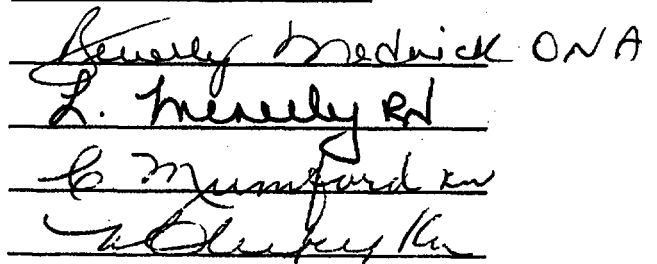 Beverly Medwick ONA
L. Meneely RN
C. Mumford RN
RN